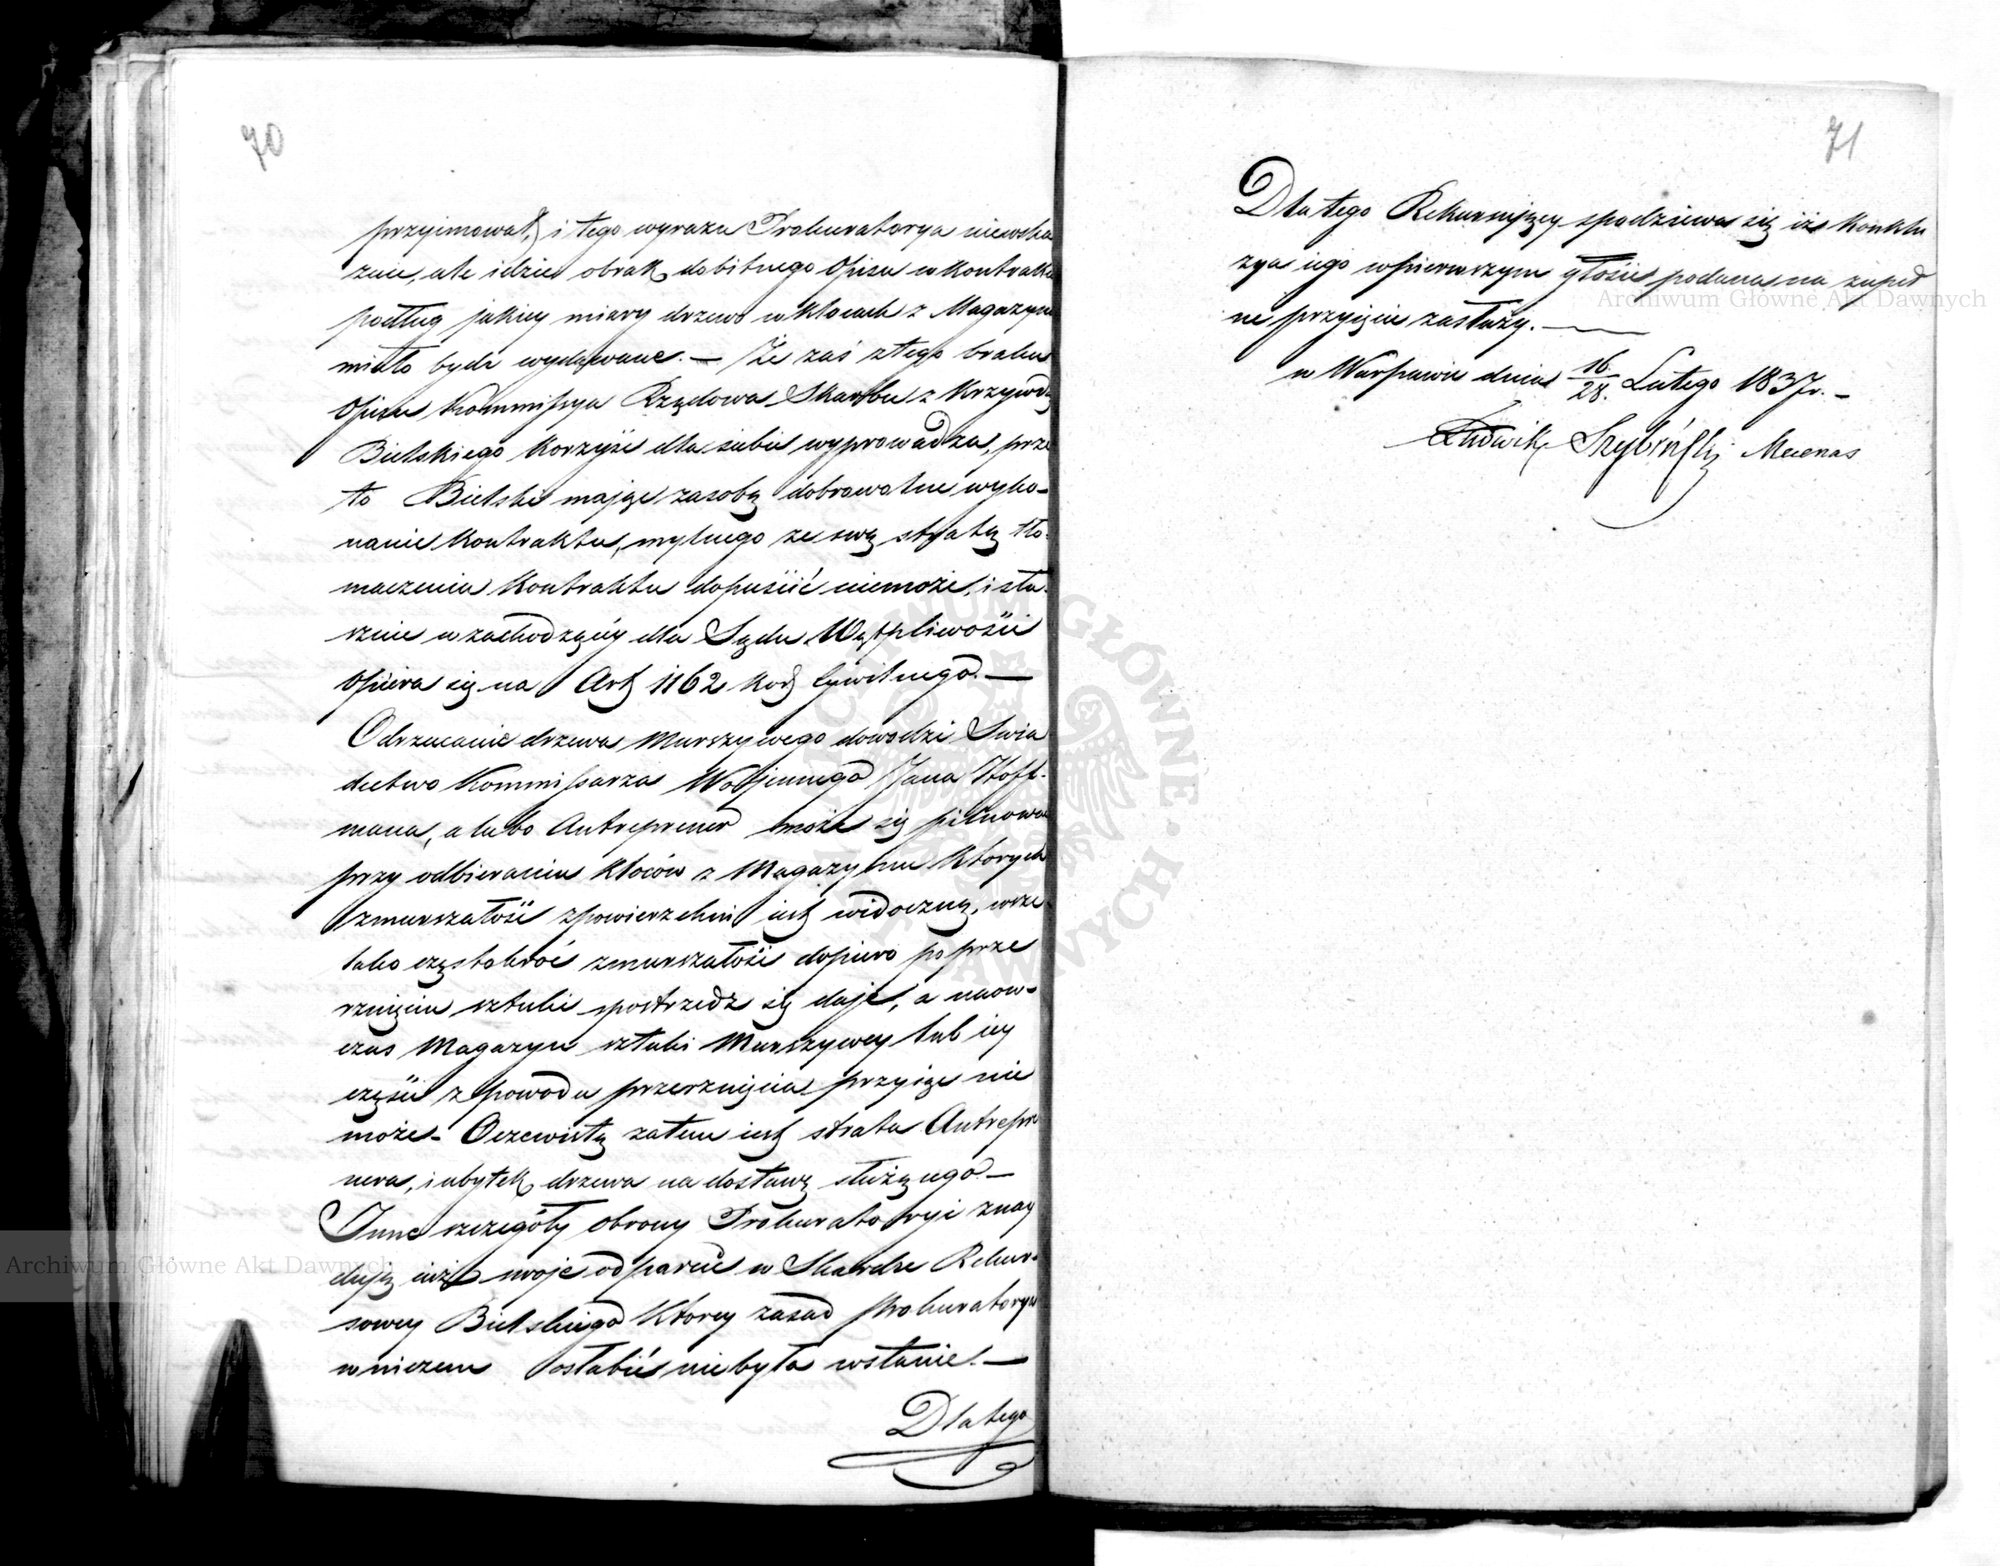 70
przyimował, i tego wyrazu Prokuratorya niewska
zuie, ale idzie o brak dobitnego Opisu w Kontrakcie
podług jakiey miary drzewo w klocach z Magazynu
miało bydź wydawane. — Że zaś z tego braku
Opisu Kommissya Rządowa Skarbu z Krzywdą
Bielskiego Korzyść dla siebie wyprowadza, prze
to Bielski mając za sobą dobrowolne wyko-
nanie Kontraktu, mylnego ze swą stratą tło-
maczenia Kontraktu dopuścić niemoże, i sta-
rzenie w zachodzącéy dla Sądu Wątpliwości
Opiera się na Art 1162 Kod Cywilnego. —
Odrzucanie drzewa Murszywego dowodzi Swia
dectwo Kommissarza Wojennego Jana Hoff-
mana, a lubo Antreprener może się pilnować
przy odbieraniu kloców z Magazynu których
zmurszałość z powierzchni iest widoczną, wsze
lako częstokroć zmurszałość dopiero po prze
rznięciu sztuki spostrzedz się daje, a naow-
czas Magazyn sztuki Murszywey lub iey
części z powodu przerznięcia przyiąć nie
może - Oczewistą zatem iest strata Antrepre
nera, i ubytek drzewa na dostawę służącego. —
Inne szczegóły obrony Prokuratoryi znay
dują iuż swoje odparcie w Skardze Rekur-
sowey Bielskiego Ktorey zasad Prokuratorya
w niczem osłabić niebyła wstanie. —
Dlatego
71
Dlatego Rekurujący spodziewa się iż Konklu
zya iego w pierwszym głosie podana na zupeł
ne przyięcie zasłuży. —
w Warszawie dnia 16/28. Lutego 1837r. —
Ludwik Mecenas
Archiwum Główne Akt Dawnych
Archiwum Główne Akt Dawnych
ARCHIWUM GŁÓWNE AKT DAWNYCH